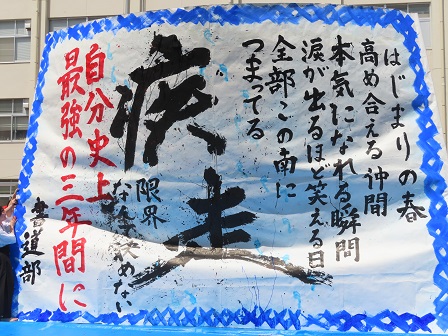 はじまりの春
高め合える仲間
本気になれる瞬間
涙が出るほど笑える日
全部この南に
つまってる
疾走
限界
なんて決めない
自分史上
最強の三年間に
書道部